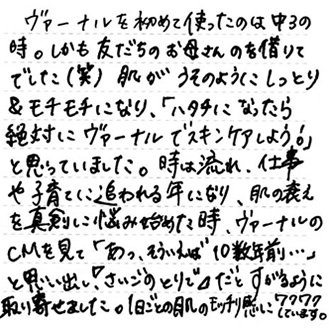 ヴァーナルを初めて使ったのは中3の
時。しかも友だちのお母さんのを借りて
でした(笑) 肌がうそのようにしっとり
&モチモチになり、「ハタチになったら
絶対にヴァーナルでスキンケアしよう!」
と思っていました。時は流れ、仕事
や子育てに追われる年になり、肌の衰え
を真剣に悩み始めた時、ヴァーナルの
CMを見て「あっ、そういえば10数年前…」
と思い出し、「さいごのとりで」だとすがるように
取り寄せました。1日ごとの肌のモッチリ感にワクワク
しています。